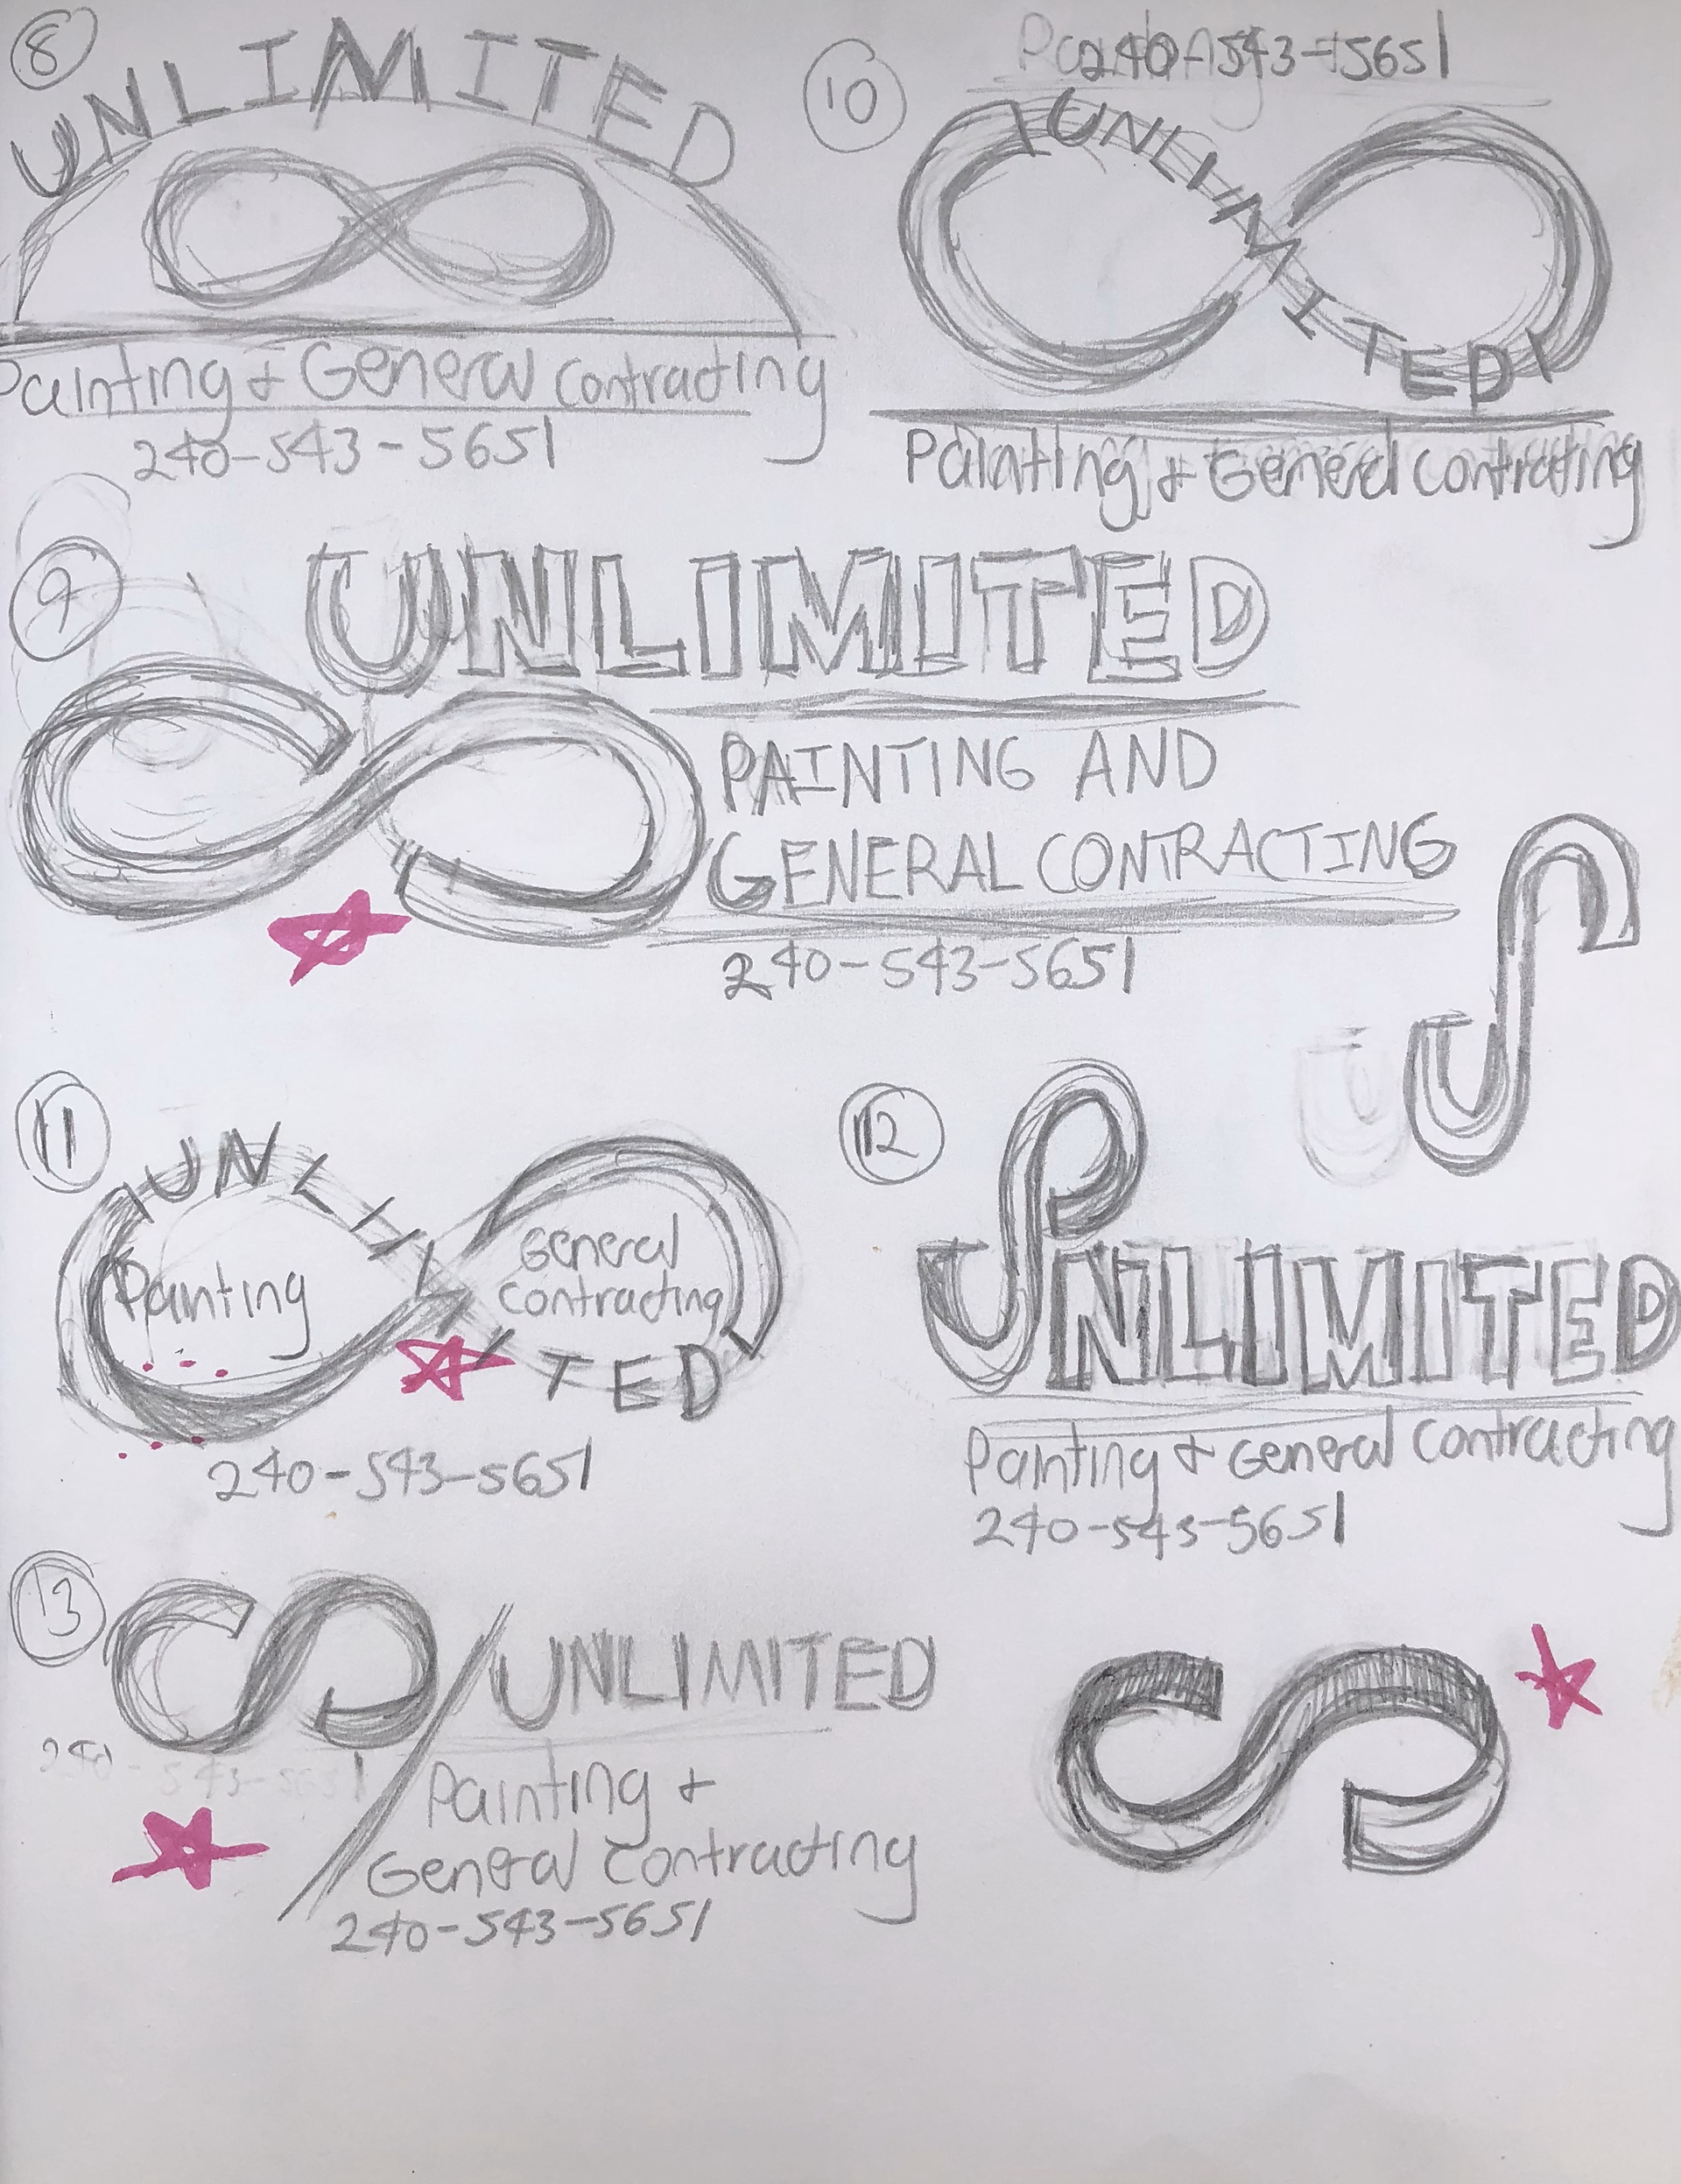 8
UNLIMITED
Painting & General Contracting
240-543-5651
10
240-543-5651
UNLIMITED
Painting & General Contrating
9
UNLIMITED
PAINTING AND
GENERAL CONTRACTING
240-543-5651
11
UNLIMITED
Painting
General
Contracting
240-543-5651
12
UNLIMITED
Painting & General Contracting
240-543-5651
13
UNLIMITED
240-543-5651
Painting &
General Contracting
240-543-5651